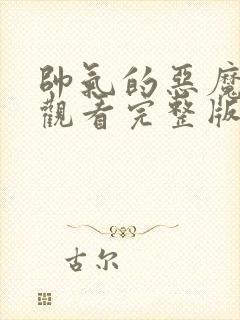 帥氣的惡魔
觀看完整版
古尔